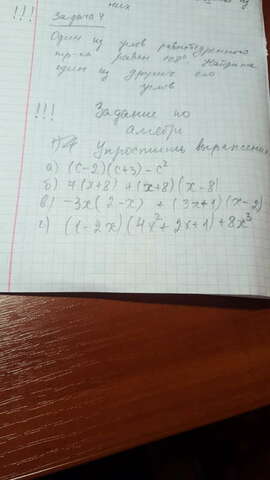 них
!!! Задача 4
Один из углов равнобедренного
тр-ка равен 108° Найдите
один из других его
углов
!!! Задание по
алгебре
Упростить выражение
а) (c-2)(c+3)-c²
б) 7(x+8)+(x+8)(x-8)
в) -3x(2-x)+(3x+1)(x-2)
г) (1-2x)(4x²+2x+1)+8x³